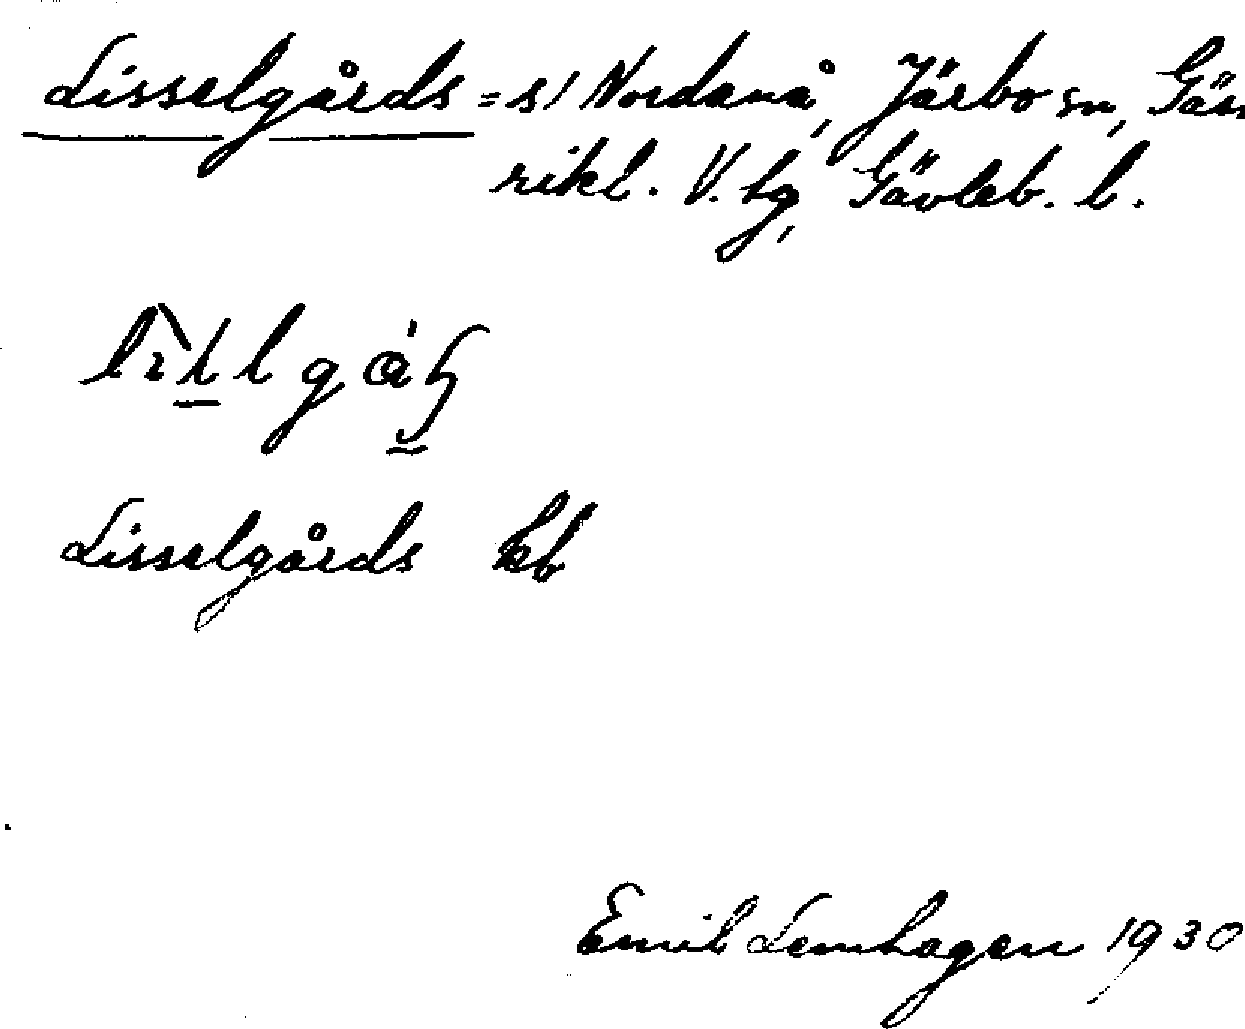 Lisselgårds = s/ Nordanå, Järbo sn, Gäst
rikl. V. tg, Gävleb. l.
Lisselgårds kb
Emil Lemhagen 1930